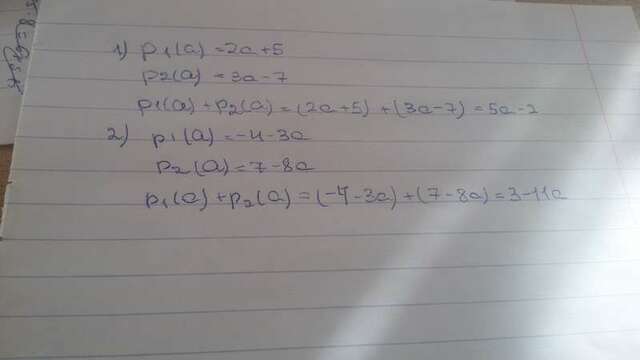 1) p₁(a) = 2a+5
p₂(a) = 3a-7
p₁(a) + p₂(a) = (2a+5) + (3a-7) = 5a-2
2) p₁(a) = -4-3a
p₂(a) = 7-8a
p₁(a) + p₂(a) = (-4-3a) + (7-8a) = 3-11a